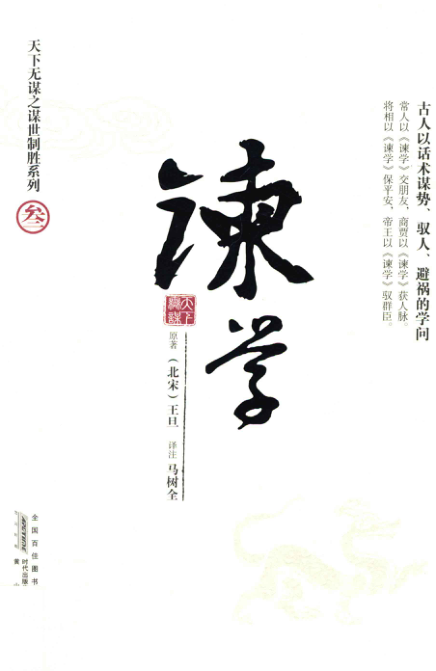 古人以话术谋势、驭人、避祸的学问
常人以《谏学》交朋友，商贾以《谏学》获人脉。
将相以《谏学》保平安，帝王以《谏学》驭群臣。
谏学
天下無謀
原著（北宋）王旦 译注 马树全
天下无谋之谋世制胜系列
叁
全国百佳图书
时代出版
黄